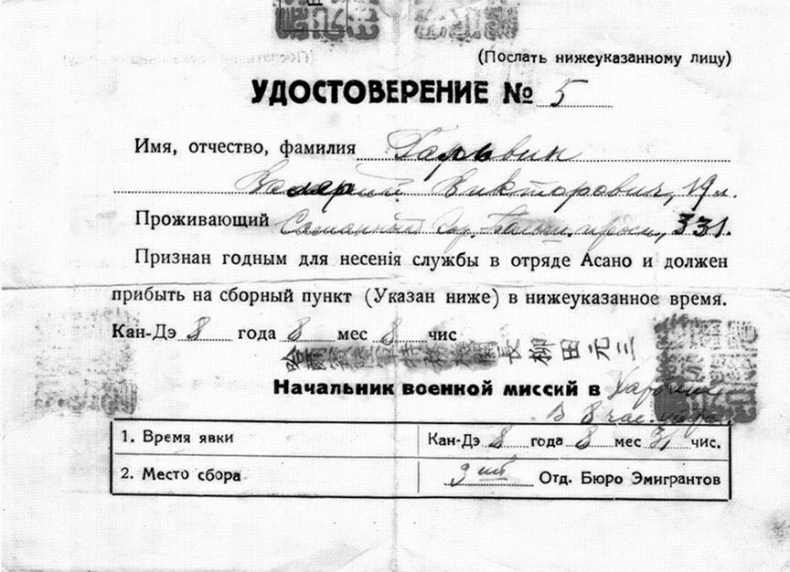 (Послать нижеуказанному лицу)
УДОСТОВЕРЕНИЕ № 5
Имя, отчество, фамилия
Валерий Викторович, 19 л.
Проживающий 331.
Признан годным для несенія службы в отряде Асано и должен
прибыть на сборный пункт (Указан ниже) в нижеуказанное время.
Кан-Дэ 8 года 8 мес 8 чис
長 柳 田 元 三
Начальник военной миссий в Харбине
В 8 час. утра.
1. Время явки Кан-Дэ 8 года 8 мес 31 чис.
2. Место сбора Отд. Бюро Эмигрантов